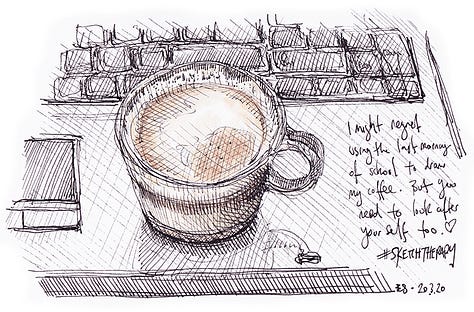 I might regret
using the last morning
of school to draw
my coffee. But you
need to look after
your self too. ♡
#SKETCHTHERAPY
EB - 20.3.20